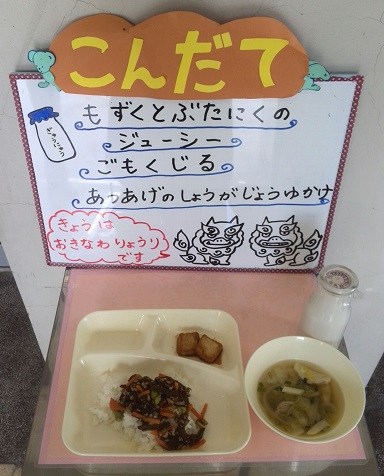 こんだて
もずくとぶたにくの
ジューシー
ぎゅうにゅう
ごもくじる
あつあげのしょうがじょうゆかけ
きょうは
おきなわりょうり
です